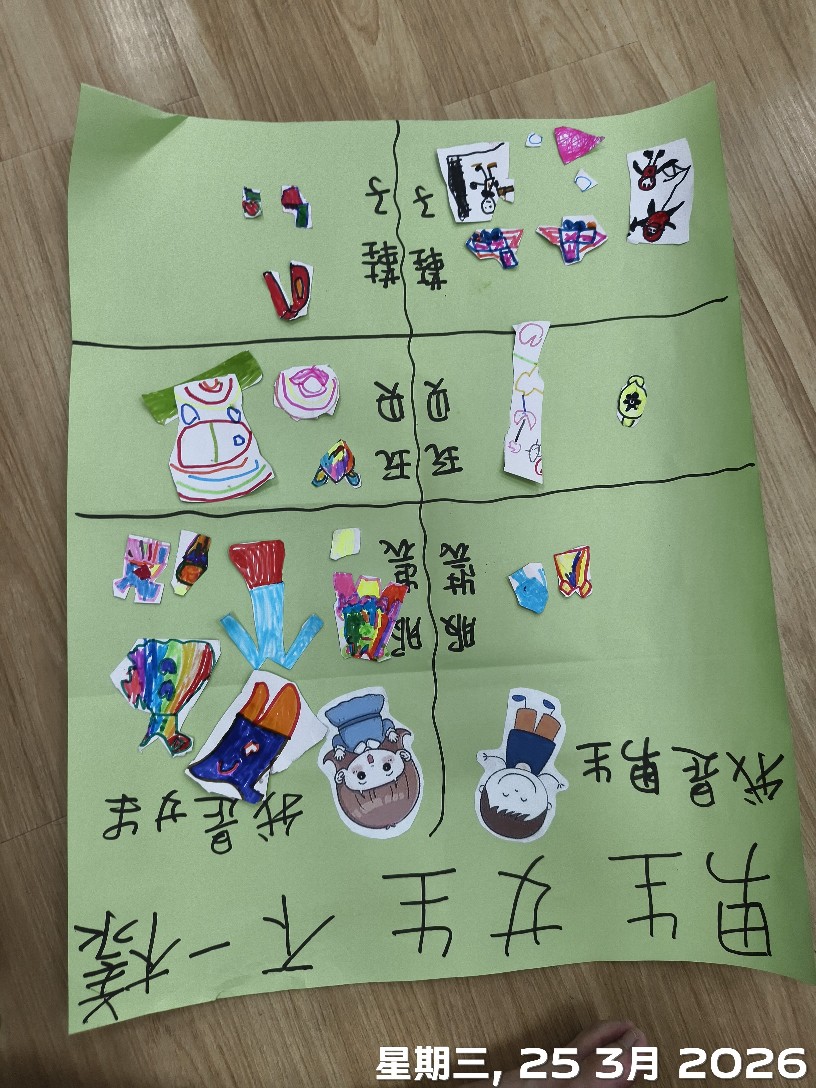 男生女生不一樣
我是男生
我是女生
服裝
服裝
玩具
玩具
鞋子
鞋子
星期三, 25 3月 2026